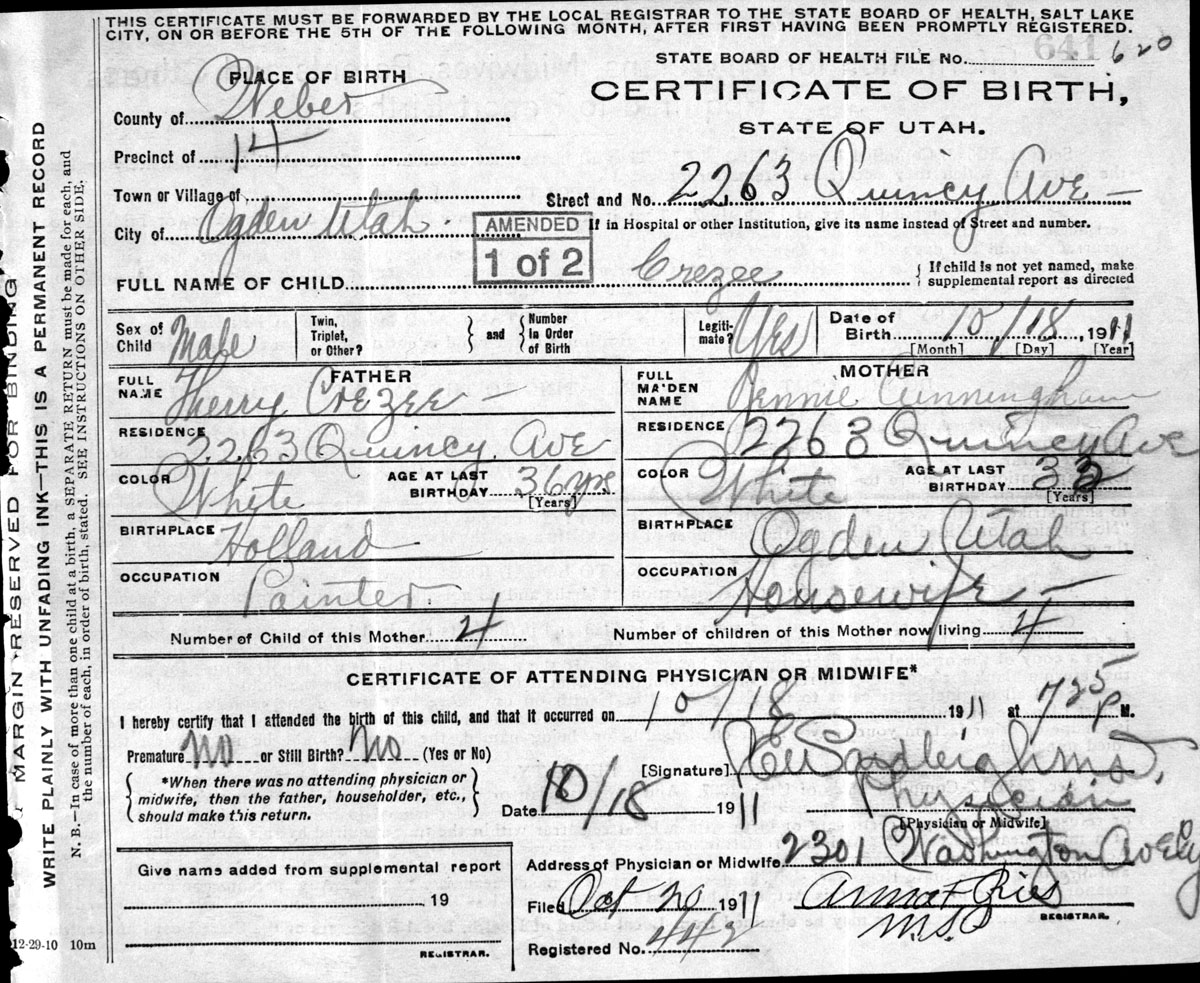 THIS CERTIFICATE MUST BE FORWARDED BY THE LOCAL REGISTRAR TO THE STATE BOARD OF HEALTH, SALT LAKE
CITY, ON OR BEFORE THE 5TH OF THE FOLLOWING MONTH, AFTER FIRST HAVING BEEN PROMPTLY REGISTERED.
STATE BOARD OF HEALTH FILE No. 641 620
PLACE OF BIRTH
CERTIFICATE OF BIRTH,
STATE OF UTAH.
County of Weber
Precinct of 14
Town or Village of
Street and No. 2263 Quincy Ave
City of Ogden Utah
If in Hospital or other Institution, give its name instead of Street and number.
AMENDED
1 of 2
FULL NAME OF CHILD Crezee
If child is not yet named, make
supplemental report as directed
Sex of Child Male
Twin, Triplet, or Other?
and
Number in Order of Birth
Legiti-mate? Yes
Date of Birth 10/18, 1911
[Month] [Day] [Year]
FATHER
FULL NAME Therry Crezee
RESIDENCE 2263 Quincy Ave
COLOR White
AGE AT LAST BIRTHDAY 36 yrs
[Years]
BIRTHPLACE Holland
OCCUPATION Painter
MOTHER
FULL MAIDEN NAME Jennie Cunningham
RESIDENCE 2263 Quincy Ave
COLOR White
AGE AT LAST BIRTHDAY 33
[Years]
BIRTHPLACE Ogden Utah
OCCUPATION Housewife
Number of Child of this Mother 4
Number of children of this Mother now living 4
CERTIFICATE OF ATTENDING PHYSICIAN OR MIDWIFE*
I hereby certify that I attended the birth of this child, and that it occurred on 10/18 1911 at 725 P M.
Premature No or Still Birth? No (Yes or No)
*When there was no attending physician or
midwife, then the father, householder, etc.,
should make this return.
[Signature]
Date 10/18 1911
Physician
[Physician or Midwife]
Give name added from supplemental report
19
REGISTRAR.
Address of Physician or Midwife 2301 Washington Ave
Filed Oct 20 1911
M.D.
REGISTRAR.
Registered No. 442
12-29-10 10m
MARGIN RESERVED FOR BINDING
WRITE PLAINLY WITH UNFADING INK—THIS IS A PERMANENT RECORD
N. B.—In case of more than one child at a birth, a SEPARATE RETURN must be made for each, and
the number of each, in order of birth, stated. SEE INSTRUCTIONS ON OTHER SIDE.